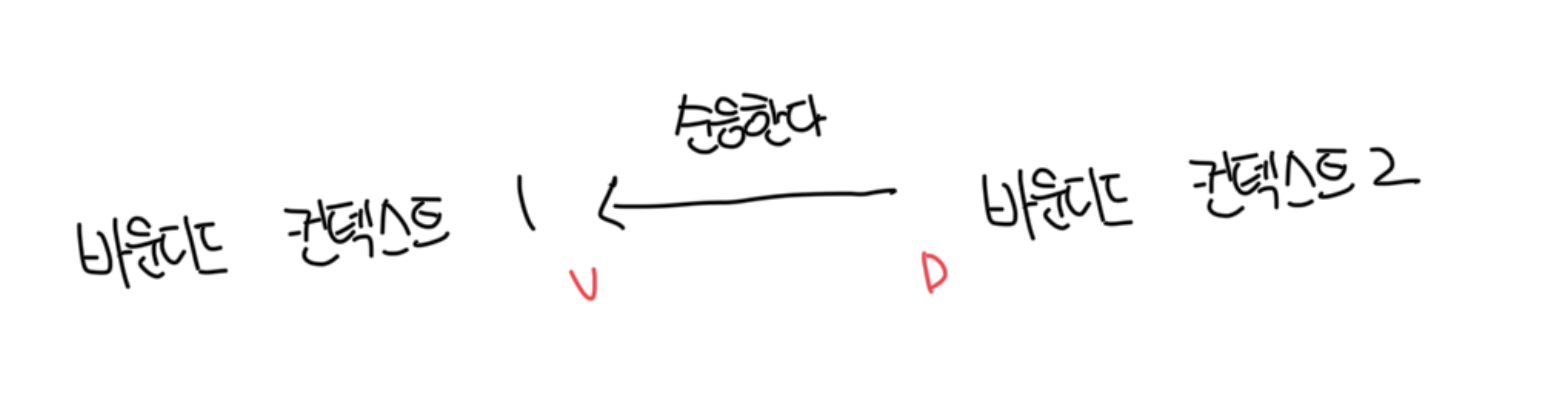 순응한다
바운디드 컨텍스트 1
바운디드 컨텍스트 2
U
D